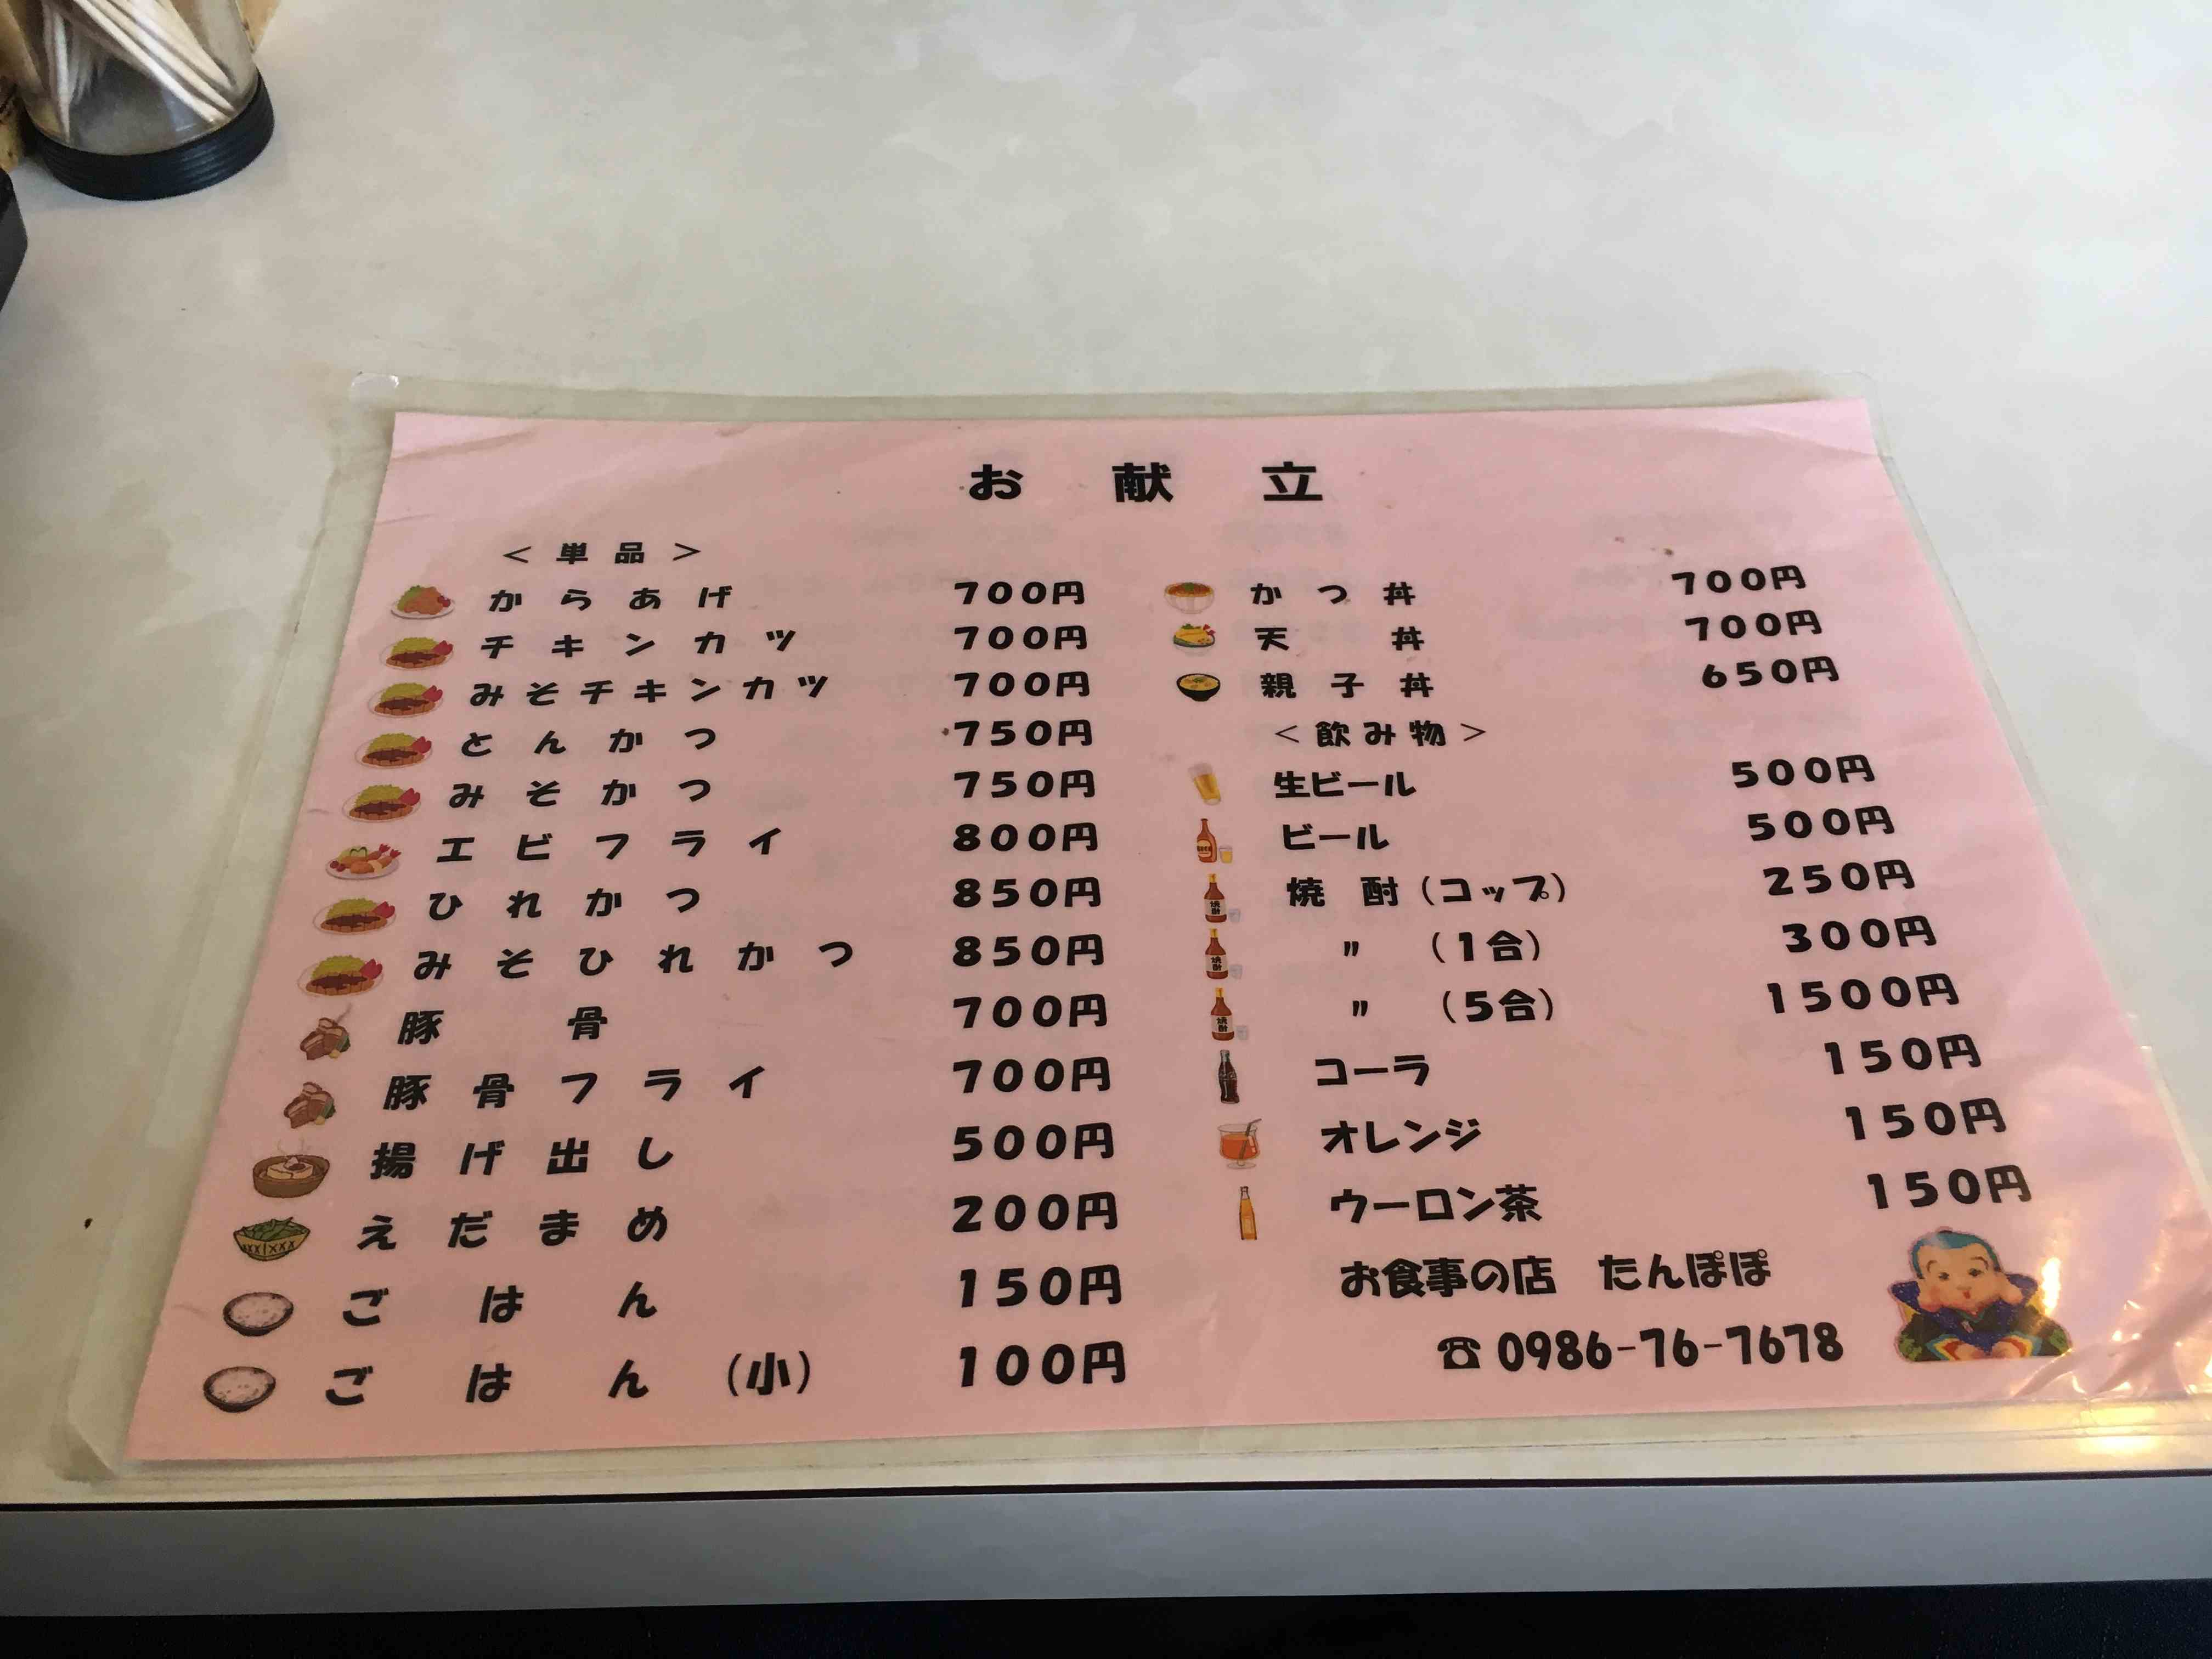 お献立
＜単品＞
からあげ 700円
チキンカツ 700円
みそチキンカツ 700円
とんかつ 750円
みそかつ 750円
エビフライ 800円
ひれかつ 850円
みそひれかつ 850円
豚骨 700円
豚骨フライ 700円
揚げ出し 500円
えだまめ 200円
ごはん 150円
ごはん（小） 100円
かつ丼 700円
天丼 700円
親子丼 650円
＜飲み物＞
生ビール 500円
ビール 500円
焼酎（コップ） 250円
〃（1合） 300円
〃（5合） 1500円
コーラ 150円
オレンジ 150円
ウーロン茶 150円
お食事の店 たんぽぽ
☎0986-76-7678